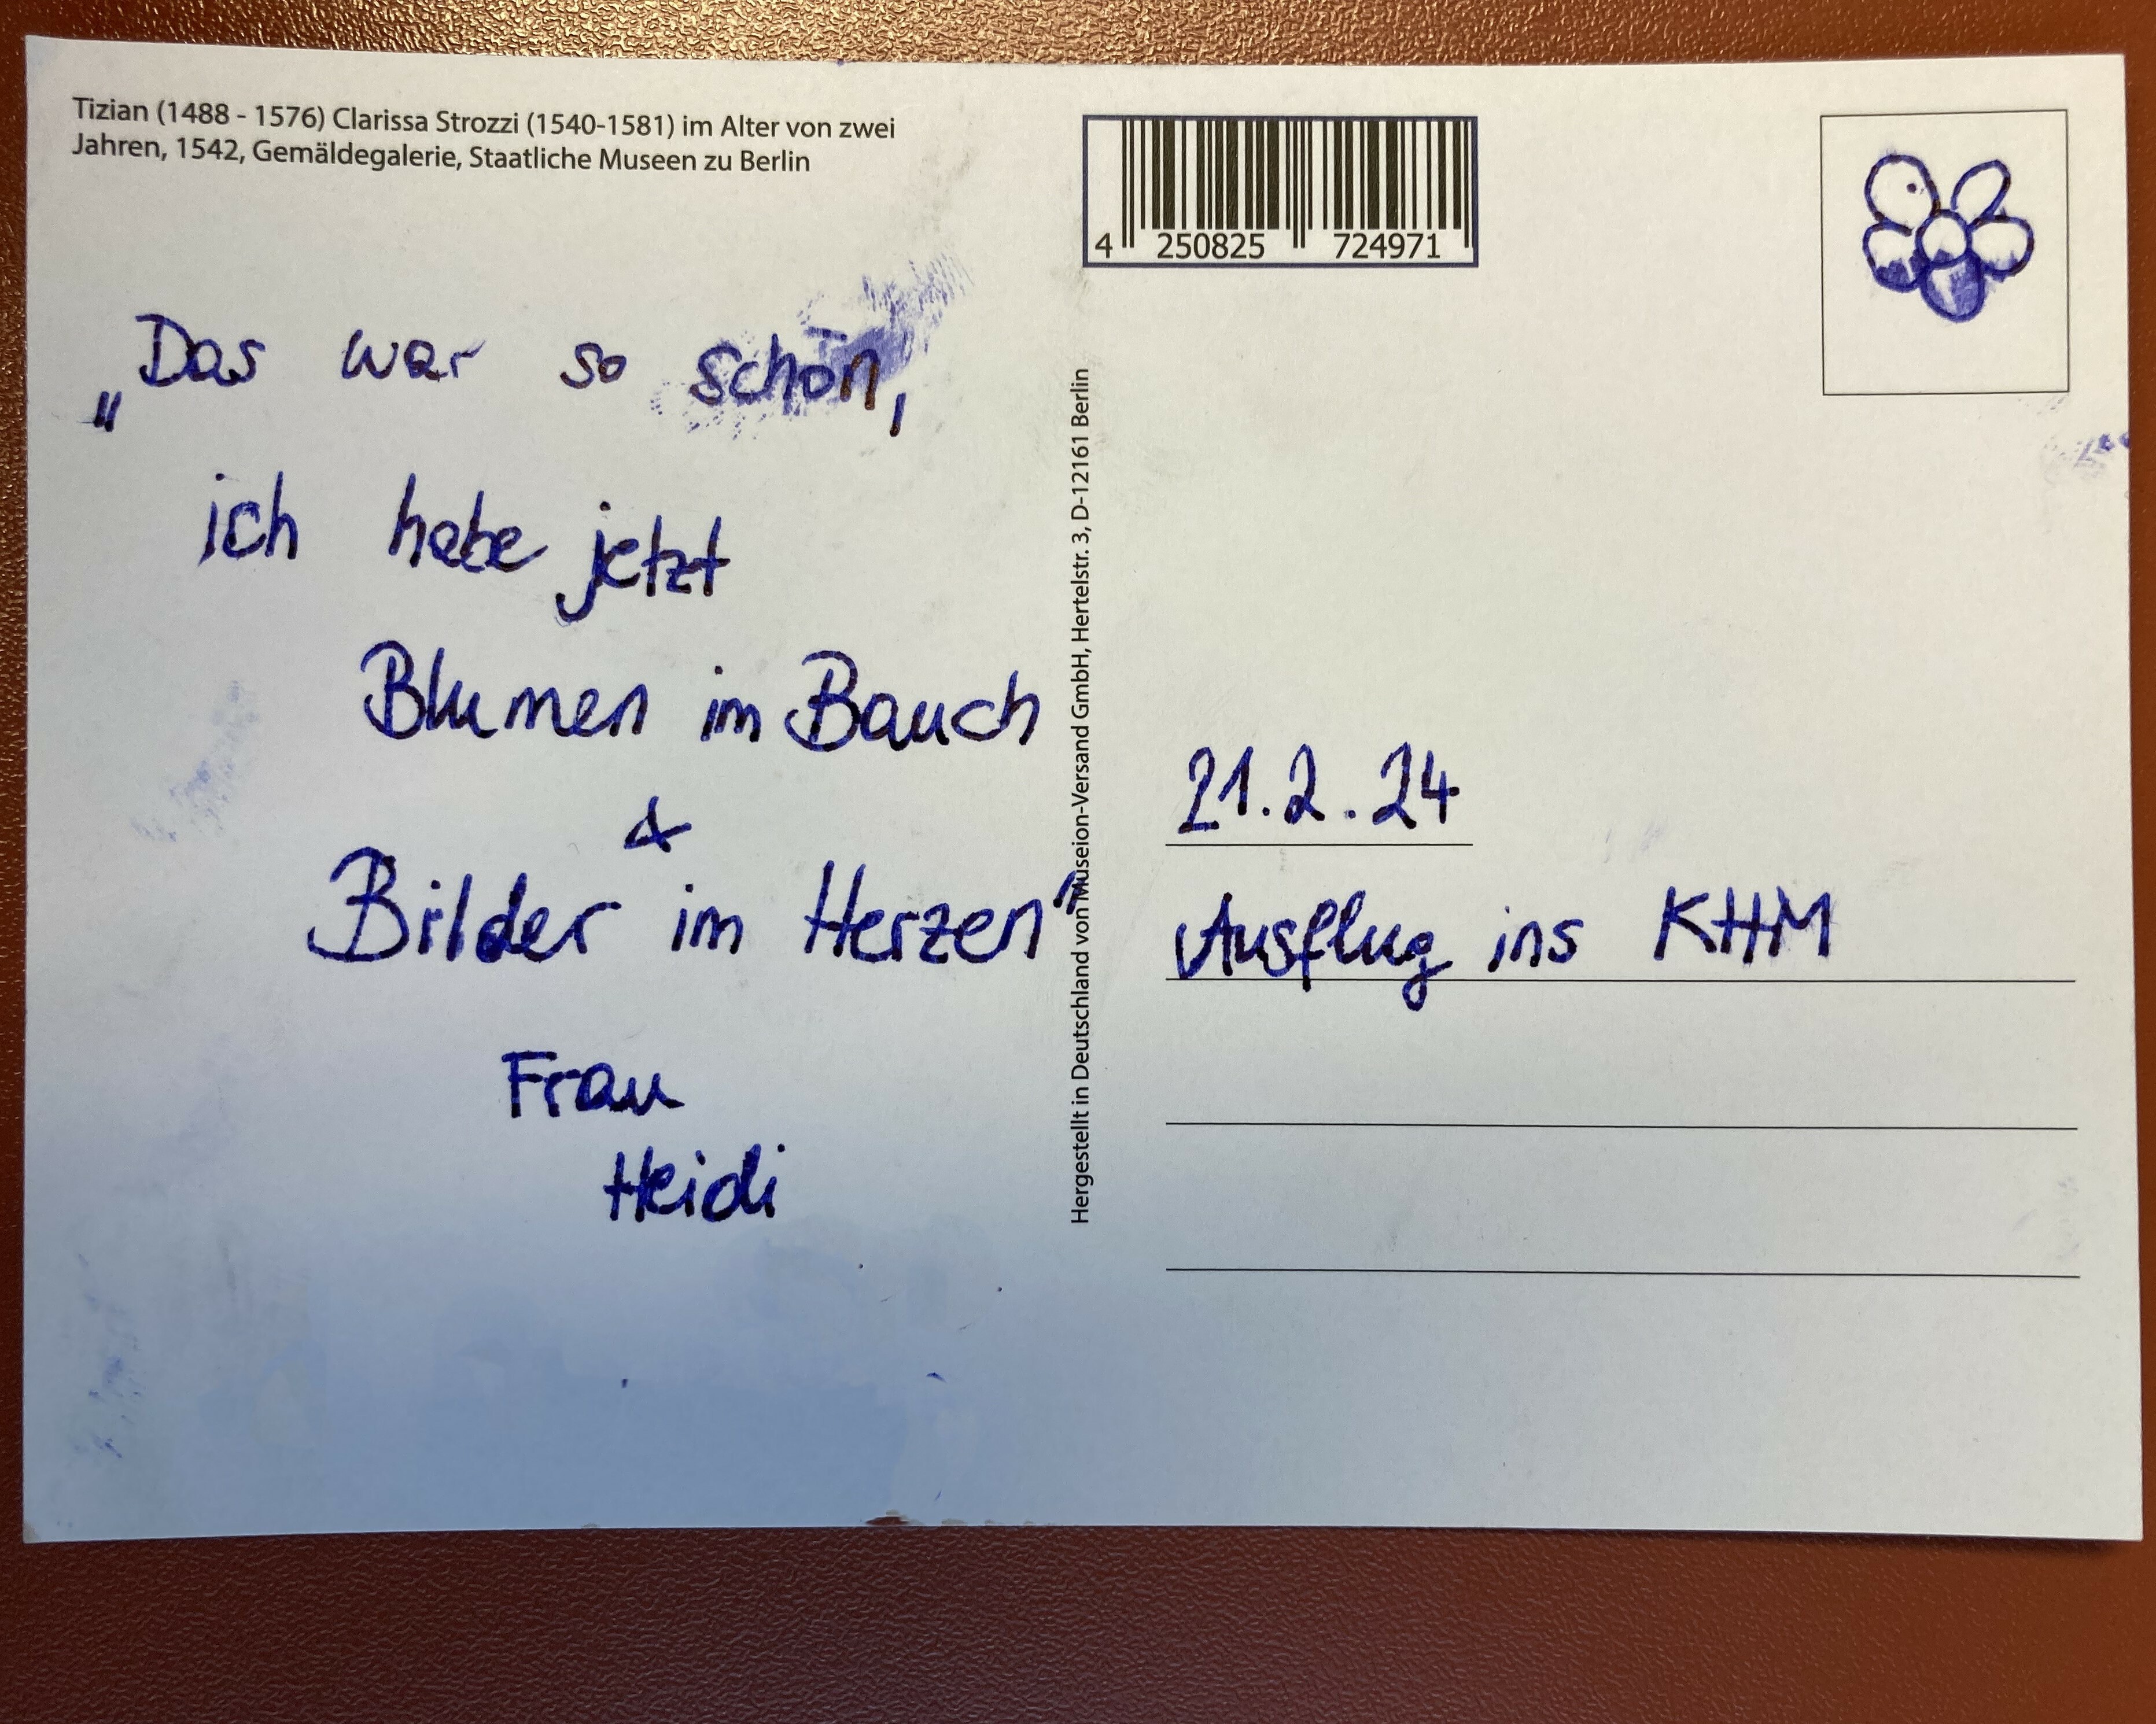 Tizian (1488 - 1576) Clarissa Strozzi (1540-1581) im Alter von zwei
Jahren, 1542, Gemäldegalerie, Staatliche Museen zu Berlin
„Das war so schön,
ich habe jetzt
Blumen im Bauch
&
Bilder im Herzen"
Frau
Heidi
Hergestellt in Deutschland von Museion-Versand GmbH, Hertelstr. 3, D-12161 Berlin
4 250825 724971
21.2.24
Ausflug ins KHM